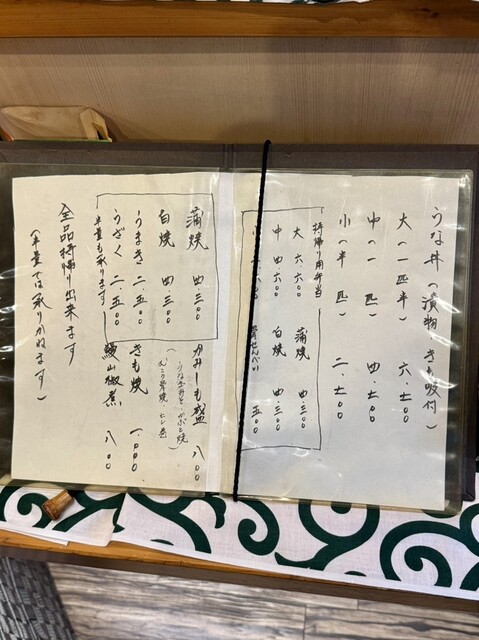 うな丼（漬物・きも吸付）
大（一匹半） 六.七〇〇
中（一匹） 四.七〇〇
小（半匹） 二.七〇〇
持帰り用弁当
大 六六〇〇 蒲焼 四.三〇〇
中 四六〇〇 白焼 四.三〇〇
骨せんべい 五〇〇
蒲焼 四.三〇〇
白焼 四.三〇〇
うまき 二.五〇〇
うざく 二.五〇〇
半量も承ります
かみーも盛 八〇〇
きも焼 一.〇〇〇
鰻山椒煮 八〇〇
全品持帰り出来ます
（半量では承りかねます）